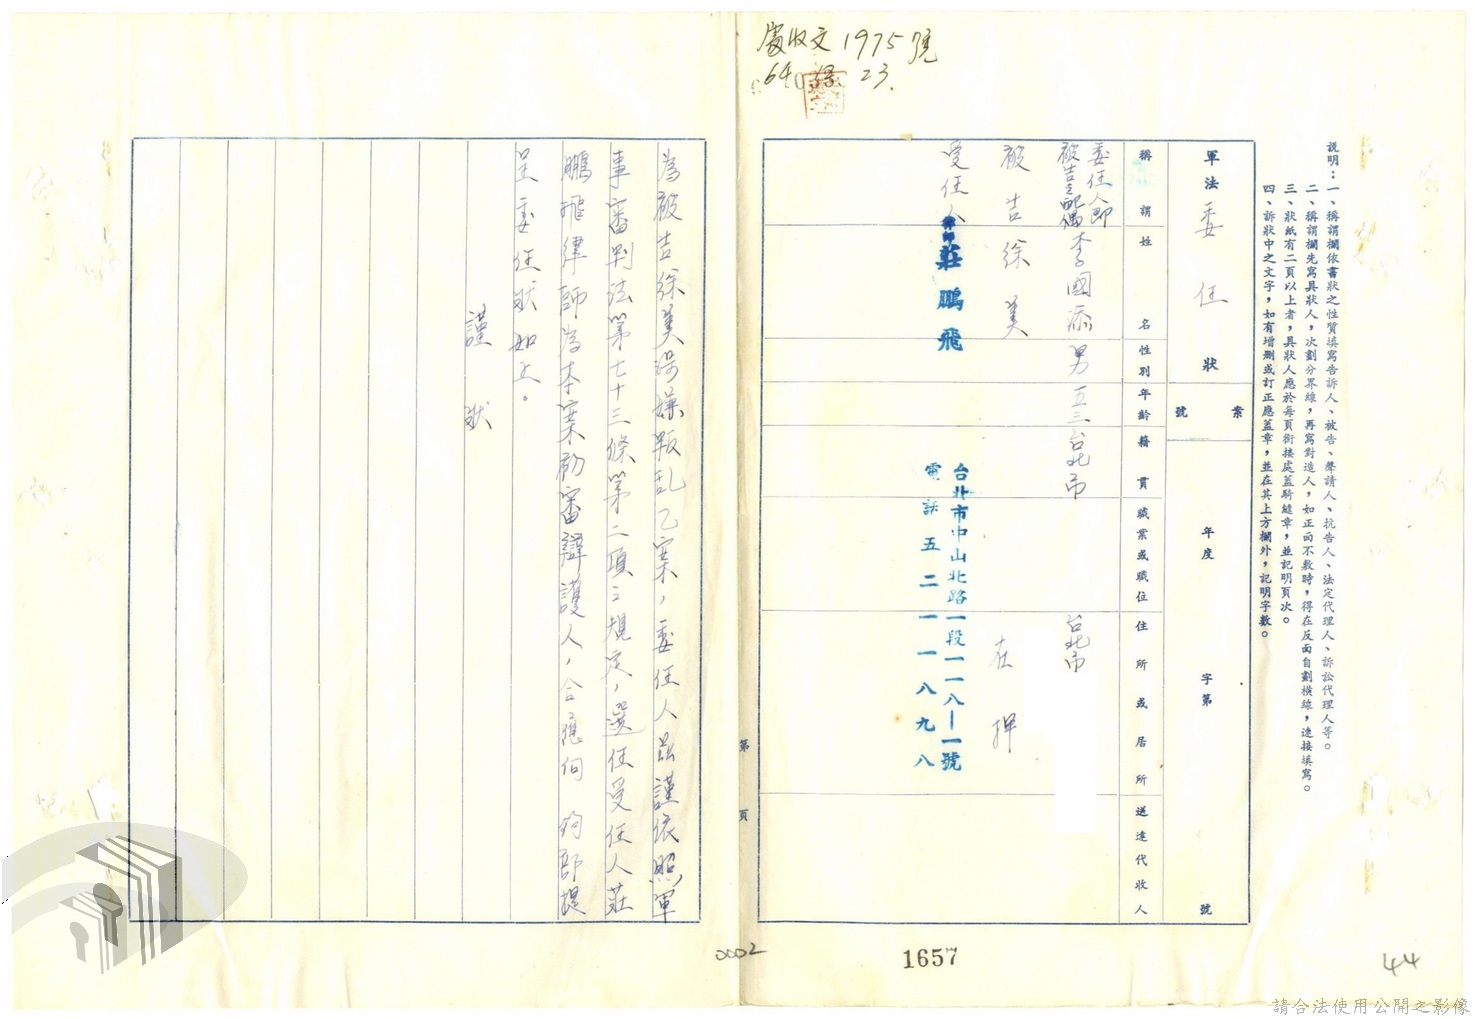 處收文1975號
64 3. 23.
說明：一、稱謂欄依書狀之性質填寫告訴人、被告、聲請人、抗告人、法定代理人、訴訟代理人等。
二、稱謂欄先寫具狀人，次劃分界線，再寫對造人，如正面不敷時，得在反面自劃橫線，連接填寫。
三、狀紙有二頁以上者，具狀人應於每頁銜接處蓋騎縫章，並記明頁次。
四、訴狀中之文字，如有增刪或訂正應蓋章，並在其上方欄外，記明字數。
軍法委任狀
案號
年度 字第 號
稱謂
姓名
性別
年齡
籍貫
職業或職位
住所或居所
送達代收人
委任人即
被告之配偶 李國添 男 五三 台北市 台北市
被告 徐美 在押
受任人 律師 莊鵬飛
台北市中山北路一段一一八—一號
電話五二一一八九八
為被告徐美涉嫌叛乱乙案，委任人茲謹依照軍
事審判法第七十三條第二項之規定，選任受任人莊
鵬飛律師為本案初審辯護人，合應向 鈞部提
呈委任狀如上。
謹狀
第 頁
0002
1657
44
請合法使用公開之影像